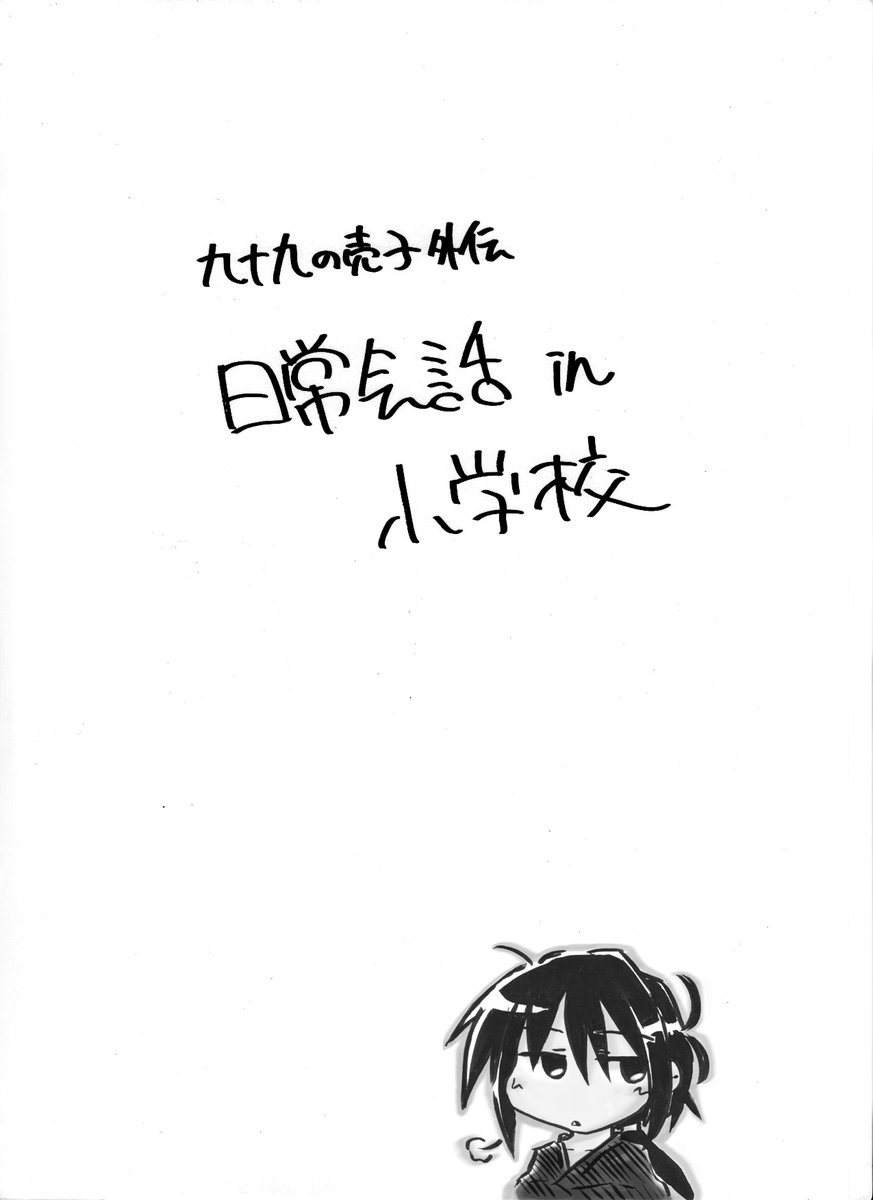 九十九の売子外伝
日常会話 in
小学校